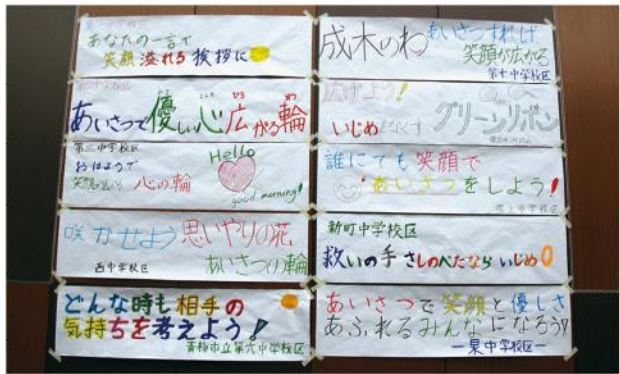 あなたの一言で
笑顔溢れる挨拶に
あいさつで優しい心広がる輪
第三中学校区
おはようで
笑顔広がり 心の輪
Hello
good morning!
咲かせよう思いやりの花
西中学校区
あいさつの輪
どんな時も相手の
気持ちを考えよう!
青梅市立第六中学校区
成木のわ あいさつすれば
笑顔が広がる
第七中学校区
広げよう!
いじめをなくす グリーンリボン
誰にでも笑顔で
あいさつをしよう!
吹上中学校区
新町中学校区
救いの手 さしのべたなら いじめ0
あいさつで笑顔と優しさ
あふれるみんなになろう!!
ー泉中学校区ー